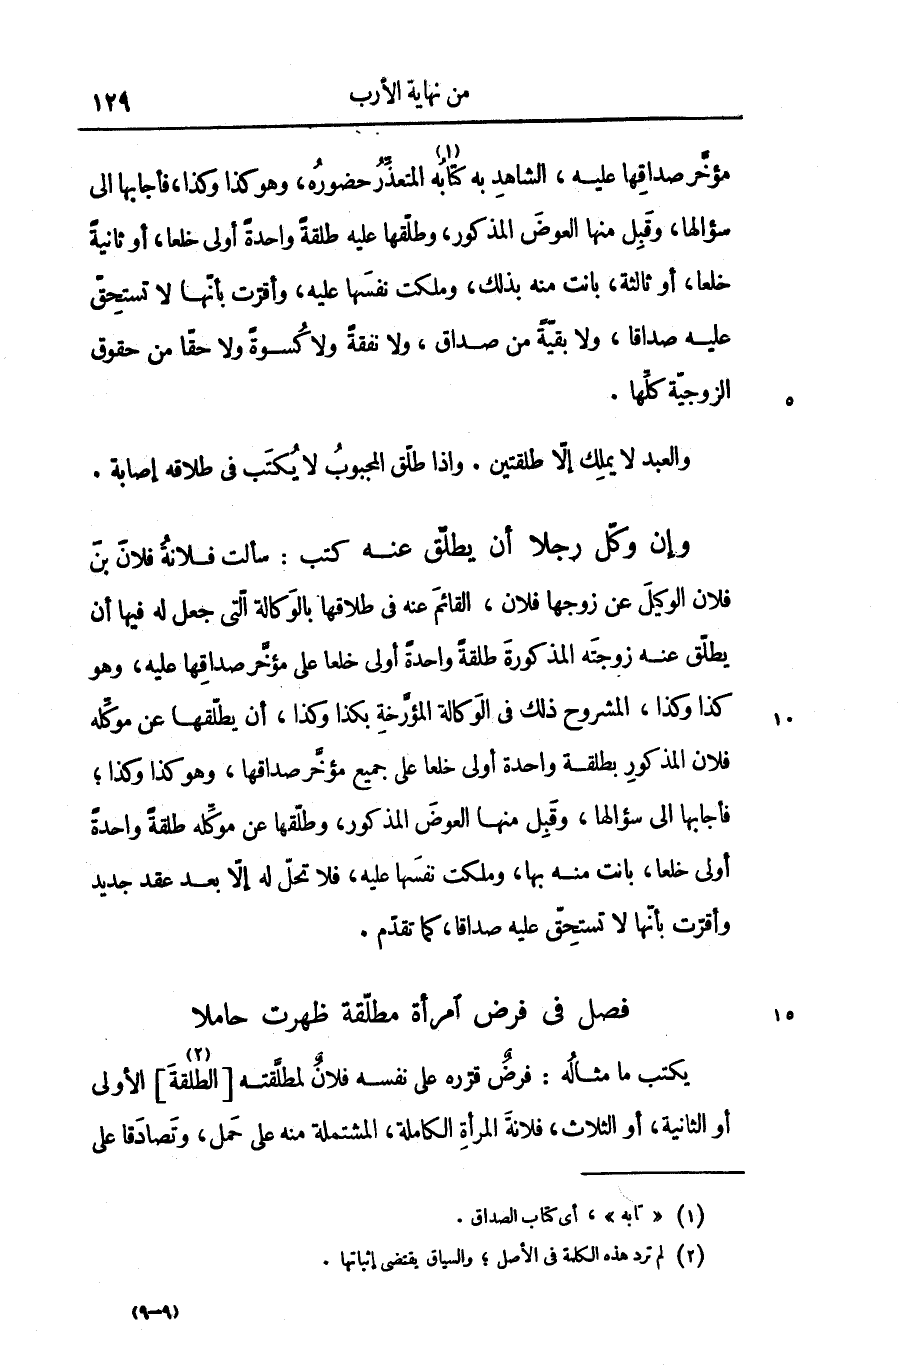 من نهاية الأرب ١٢٩
مؤخَّر صداقِها عليه ، الشاهدِ به كتابُه (١) المتعذِّرُ حضورُه، وهو كذا وكذا، فأجابها الى
سؤالها، وقَبِل منها العوضَ المذكور، وطلّقها عليه طلقةً واحدةً أولى خلعا، أو ثانيةً
خلعا، أو ثالثة، بانت منه بذلك، وملكت نفسَها عليه، وأقرّت بأنّها لا تستحِقّ
عليه صداقا ، ولا بقيّةً من صداق ، ولا نفقةً ولا كُسوةً ولا حقّا من حقوق
الزوجيّة كلِّها . ٥
والعبد لا يملِك إلّا طلقتين . واذا طلّق المجبوبُ لا يُكتَب فى طلاقه إصابة .
وإن وكّل رجلا أن يطلّق عنه كتب : سألت فلانةُ فلانَ بنَ
فلان الوكيلَ عن زوجها فلان ، القائمَ عنه فى طلاقها بالوَكالة الّتى جعل له فيها أن
يطلّق عنه زوجتَه المذكورةَ طلقةً واحدةً أولى خلعا على مؤخَّر صداقِها عليه، وهو
كذا وكذا ، المشروح ذلك فى الوَكالة المؤرَّخةِ بكذا وكذا ، أن يطلّقها عن موكِّله ١٠
فلان المذكورِ بطلقة واحدة أولى خلعا على جميع مؤخَّر صداقها ، وهو كذا وكذا ؛
فأجابها الى سؤالها ، وقَبِل منها العوضَ المذكور، وطلّقها عن موكِّله طلقةً واحدةً
أولى خلعا، بانت منه بها، وملكت نفسَها عليه، فلا تحلّ له إلّا بعد عقد جديد
وأقرّت بأنّها لا تستحِقّ عليه صداقا، كما تقدّم .
فصل فى فرض آمرأة مطلّقة ظهرت حاملا ١٥
يكتب ما مثالُه : فرضٌ قرّره على نفسه فلانٌ لمطلَّقته [الطلقةَ] (٢) الأولى
أو الثانية، أو الثلاث، فلانةَ المرأةِ الكاملة، المشتملة منه على حَمل، وتَصادَقا على
(١) « كتابه » ، أى كتاب الصداق .
(٢) لم ترد هذه الكلمة فى الأصل ؛ والسياق يقتضى إثباتها .
(٩-٩)